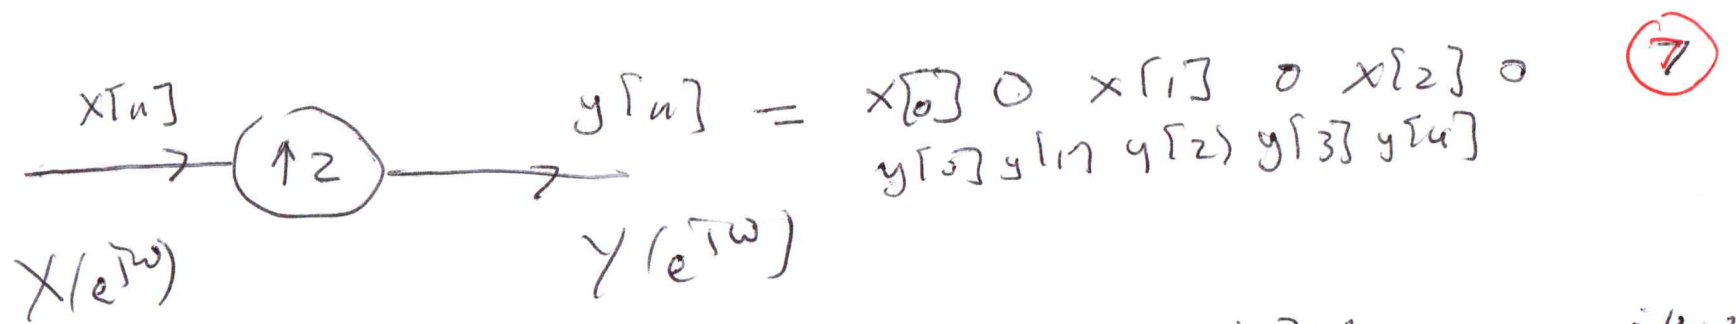 x[n] y[n] = x[0] 0 x[1] 0 x[2] 0 7
↑2 y[0] y[1] y[2] y[3] y[4]
X(e^jω) Y(e^jω)